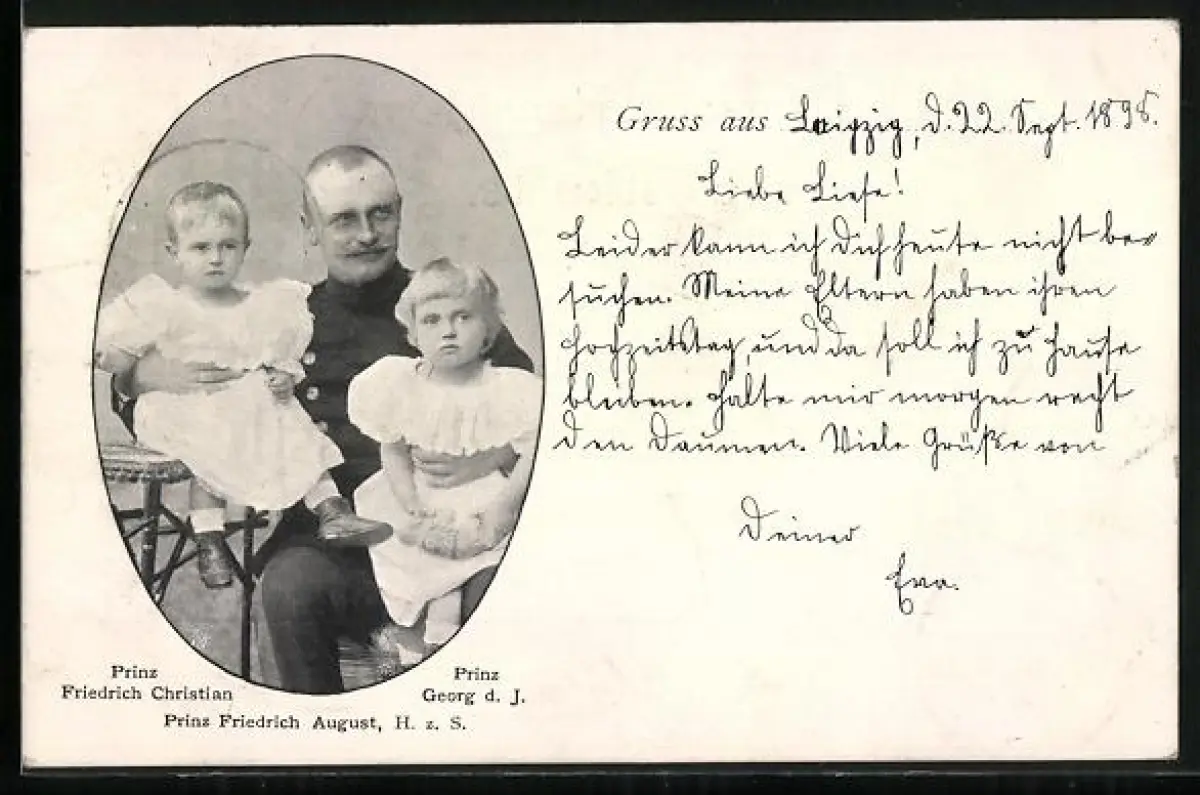 Gruss aus Leipzig, d. 22. Sept. 1898.
Liebe Liese!
Leider kann ich Dich heute nicht be-
suchen. Meine Eltern haben ihren
Hochzeitstag, und da soll ich zu Hause
bleiben. Halte mir morgen recht
den Daumen. Viele Grüße von
Deiner
Eva.
Prinz
Friedrich Christian
Prinz
Georg d. J.
Prinz Friedrich August, H. z. S.